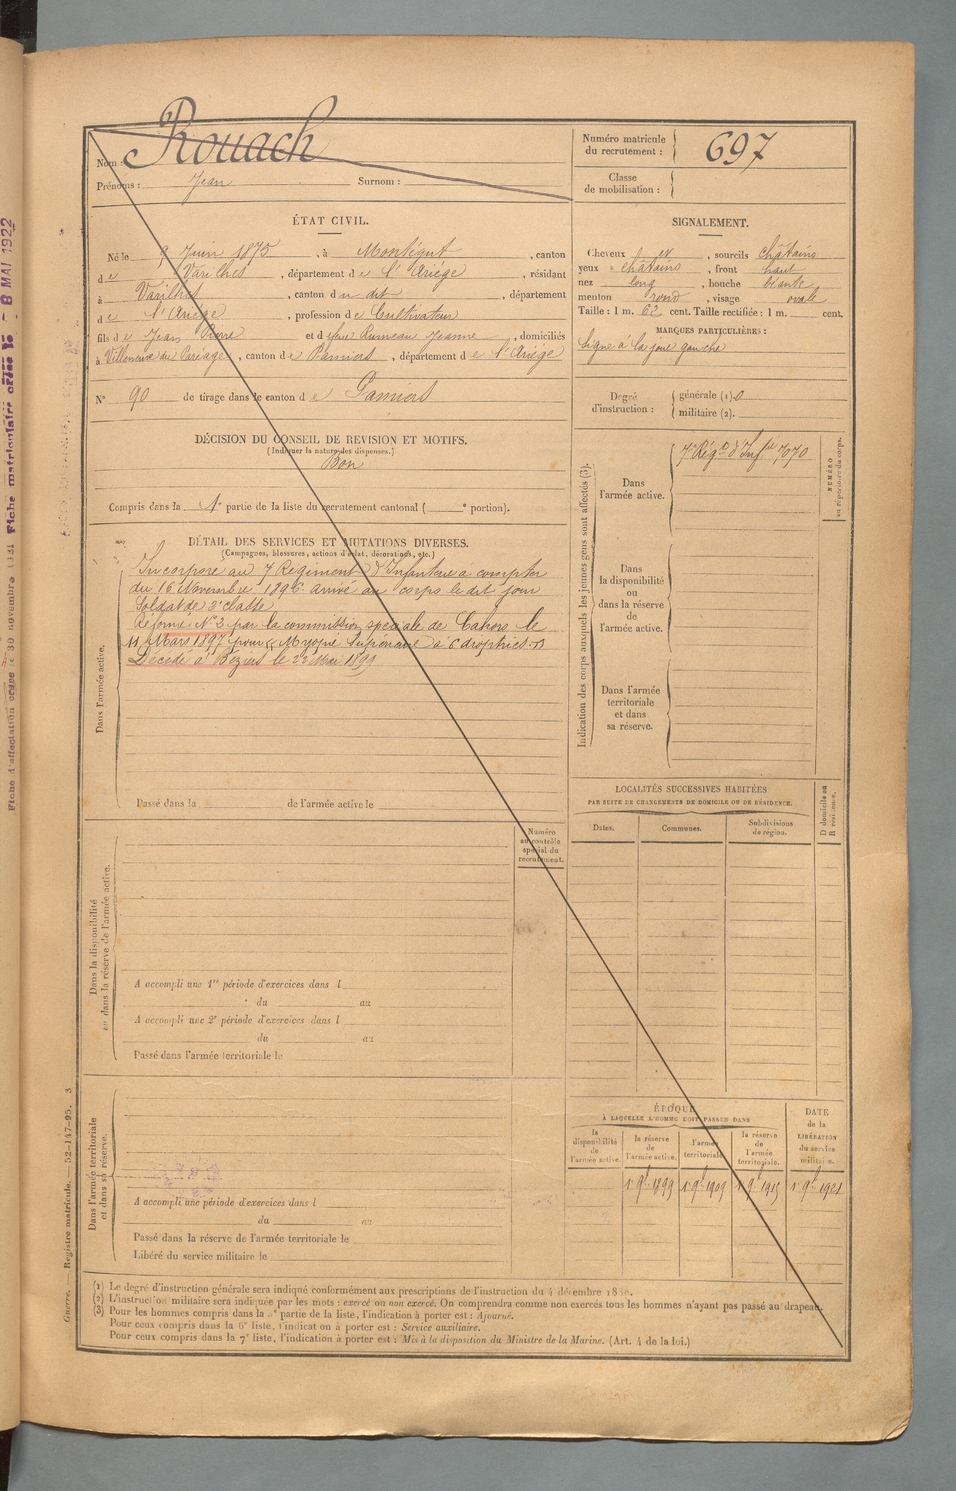 Nom : Rouach
Prénoms : Jean Surnom :
Numéro matricule du recrutement : 697
Classe de mobilisation :
ÉTAT CIVIL.
Né le 9 Juin 1875, à Montégut, canton
de Varilhes, département de l'Ariège, résidant
à Varilhes, canton du dit, département
de l'Ariège, profession de Cultivateur
fils de Jean Pierre et de feue Rumeau Jeanne, domiciliés
à Villeneuve du Paréage, canton de Pamiers, département de l'Ariège
N° 90 de tirage dans le canton de Pamiers
SIGNALEMENT.
Cheveux et, sourcils châtains
yeux châtains, front haut
nez long, bouche
menton rond, visage ovale
Taille : 1 m. 62 cent. Taille rectifiée : 1 m. cent.
MARQUES PARTICULIÈRES :
Signe à la joue gauche
Degré d'instruction : générale (1). 0
militaire (2).
DÉCISION DU CONSEIL DE REVISION ET MOTIFS.
(Indiquer la nature des dispenses.)
Bon
Compris dans la 1e partie de la liste du recrutement cantonal ( e portion).
DÉTAIL DES SERVICES ET MUTATIONS DIVERSES.
(Campagnes, blessures, actions d'éclat, décorations, etc.)
Dans l'armée active.
Incorporé au 7 Régiment d'Infanterie a compter
du 16 Novembre 1896. arrivé au corps le dit jour
Soldat de 2e classe
Réformé N° 2 par la commission spéciale de Cahors le
11 Mars 1897 pour « Myopie Supérieure à 6 dioptries. »
Décédé à Béziers le 22 Mai 1899
Passé dans la de l'armée active le
Indication des corps auxquels les jeunes gens sont affectés (3).
Dans l'armée active.
7e Régt d'Infie 7070
NUMÉRO au répertoire du corps.
Dans la disponibilité ou dans la réserve de l'armée active.
Dans l'armée territoriale et dans sa réserve.
LOCALITÉS SUCCESSIVES HABITÉES
PAR SUITE DE CHANGEMENTS DE DOMICILE OU DE RÉSIDENCE.
Dates. Communes. Subdivisions de région. D domicile ou R résidence.
Dans la disponibilité ou dans la réserve de l'armée active.
Numéro au contrôle spécial du recrutement.
A accompli une 1re période d'exercices dans l
du au
A accompli une 2e période d'exercices dans l
du au
Passé dans l'armée territoriale le
Dans l'armée territoriale et dans sa réserve.
A accompli une période d'exercices dans l
du au
Passé dans la réserve de l'armée territoriale le
Libéré du service militaire le
ÉPOQUE
À LAQUELLE L'HOMME DOIT PASSER DANS
la disponibilité de l'armée active. la réserve de l'armée active. l'armée territoriale. la réserve de l'armée territoriale. DATE de la LIBÉRATION du service militaire.
1er 9bre 1899 1er 9bre 1909 1er 9bre 1915 1er 9bre 1921
(1) Le degré d'instruction générale sera indiqué conformément aux prescriptions de l'instruction du 4 décembre
(2) L'instruction militaire sera indiquée par les mots : exercé ou non exercé. On comprendra comme non exercés tous les hommes n'ayant pas passé au drapeau.
(3) Pour les hommes compris dans la partie de la liste, l'indication à porter est : Ajourné.
Pour ceux compris dans la 6e liste, l'indication à porter est : Service auxiliaire.
Pour ceux compris dans la 7e liste, l'indication à porter est : Mis à la disposition du Ministre de la Marine. (Art. 4 de la loi.)
Guerre. — Registre matricule. — 52-147-95. 3
8 MAI 1922